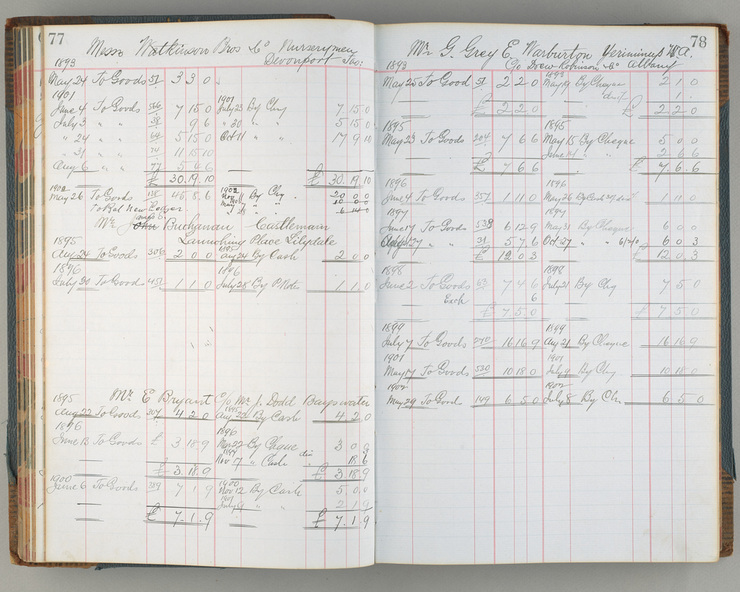 77
Messrs Watkinson Bros & Co Nurserymen
Devonport Tas:
1893
May 24 To Goods 57 3 3 0
1901
June 4 To Goods 7 15 0 July 23 By Chq 7 15 0
July 3 " " 9 6 " 30 " " 5 15 0
" 24 " " 64 5 15 0 Oct 11 " " 17 9 10
" 31 " " 74 11 15 10
Aug 6 " " 77 5 4 6
£ 30.19.10 £ 30.19.10
1902 1902
May 26 To Goods 138 48.8.6 By Chq 20 0 0
To Bal New Ledger 10 0 0
Mr John Buchanan Castlemain
Launching Place Lilydale
1895 1895
Aug 24 To Goods 2 0 0 Aug 24 By Cash 2 0 0
1896 1896
July 28 To Goods 1 1 0 July 28 By P Note 1 1 0
Mr E Bryant C/o Mr J. Dodd Bayswater
1895 1895
Aug 22 To Goods 307 4 2 0 Aug 22 By Cash 4 2 0
1896 1896
June 13 To Goods £ 3 18 9 By Cheque 3 0 9
Nov 17 " Cash 18
£ 3.18.9 £ 3.18.9
1900 1900
June 6 To Goods 7 1 9 Nov 12 By Cash 5 0 0
July 9 " " 2 1 9
£ 7.1.9 £ 7.1.9
78
Mr G. Grey E. Warburton Veriminup W.A.
1893 C/o Drew Robinson & Co Albany
1893
May 25 To Good 57 2 2 0 May 19 By Cheque 2 1 0
dist 1
£ 2 2 0 £ 2 2 0
1895 1895
May 23 To Goods 204 7 6 6 May 15 By Cheque 5 0 0
June 14 " " 2 6 6
£ 7 6 6 £ 7.6.6
1896 1896
June 4 To Goods 357 1 11 0 May 26 By Cash 1 11 0
1897 1897
June 17 To Goods 538 6 12 9 May 31 By Cheque 6 0 0
" " 31 5 7 6 Oct 27 " " 6 0 3
£ 12 0 3 £ 12 0 3
1898 1898
June 2 To Goods 63 7 4 6 July 21 By Chq 7 5 0
Exch 6
£ 7 5 0 £ 7 5 0
1899 1899
July 7 To Goods 270 16 16 9 Aug 21 By Cheque 16 16 9
1901 1901
May 17 To Goods 520 10 18 0 July 9 By Chq 10 18 0
1902 1902
May 29 To Good 149 6 5 0 July 8 By Chq 6 5 0